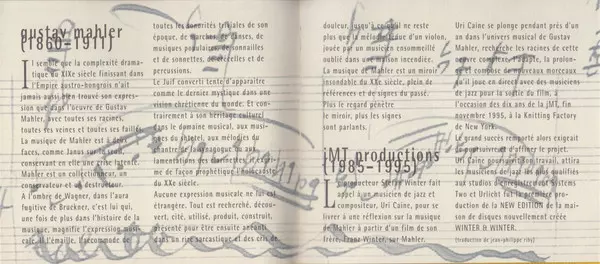 gustav mahler
(1860-1911)
Il semble que la complexité drama-
tique du XIXe siècle finissant dans
l'Empire austro-hongrois n'ait
jamais aussi bien trouvé son expres-
sion que dans l'oeuvre de Gustav
Mahler, avec toutes ses racines,
toutes ses veines et toutes ses failles.
La musique de Mahler est à deux
faces, comme Janus sur son
conservant en elle son
Mahler est un collectionneur, un
conservateur et un destructeur.
A l'ombre de Wagner, dans l'aura
fugitive de Bruckner, c'est lui qui,
une fois de plus dans l'histoire de la
musique, magnifie l'expression musi-
cale et l'émaille. Il l'accommode de
toutes les sonorités triviales de son
époque, de marches, de danses, de
musiques populaires, de sonnailles
et de sonnettes, de crécelles et de
percussions.
Le Juif converti tente d'apparaître
comme le dernier mystique dans une
vision chrétienne du monde. Et con-
trairement à son héritage culturel
dans le domaine musical, aux musi-
ques du shtetel, aux mélodies du
chantre de la synagogue ou aux
lamentations des
me de façon prophétique l'holocauste
du XXe siècle.
Aucune expression musicale ne lui est
étrangère. Tout est recherché, décou-
vert, cité, utilisé, produit, construit,
présenté pour être ensuite anéanti
dans un rire sarcastique et des cris de
douleur, jusqu'à ce que ne reste
plus que la mélodie ténue d'un violon,
jouée par un musicien ensommeillé
oublié dans un
La musique de Mahler est un miroir
insondable du XXe siècle, plein de
références et de signes du passé.
Plus le regard pénètre
le miroir, plus les signes
sont parlants.
jMT productions
(1985-1995)
Le producteur Stefan Winter fait
appel à un musicien de jazz et
Uri Caine, pour se
livrer à une réflexion sur la musique
de Mahler à partir d'un film de son
frère, Franz Winter, sur Mahler.
Uri Caine se plonge pendant près d'un
an dans l'univers musical de Gustav
Mahler, recherche les racines de cette
oeuvre complexe, l'adapte, la prolon-
ge et compose de nouveaux morceaux
qu'il joue en direct avec des musiciens
de jazz pour la sortie du film, à
l'occasion des dix ans de la JMT, fin
novembre 1995, à la Knitting Factory
de New York.
Le grand succès remporté alors exigeait
de poursuivre et d'affiner le projet.
Uri Caine poursuivit son travail, attira
les musiciens de jazz les plus qualifiés
aux studios Systems
Two et Urlicht fut la première pro-
duction de la NEW EDITION de la mai-
son de disques nouvellement créée
WINTER & WINTER.
(traduction de jean-philippe riby)